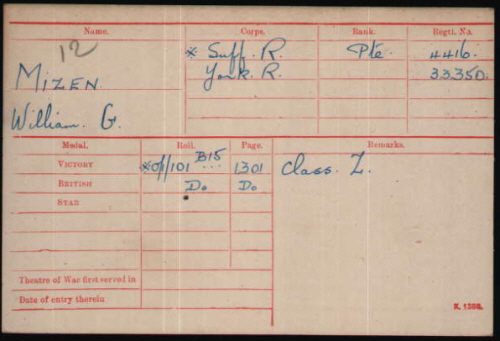 Name. Corps. Rank. Regtl. No.
12
* Suff. R. Pte. 4416.
MIZEN York. R. 33350.
William. G.
Medal. Roll. Page. Remarks.
VICTORY *Off/101 B15 ... 1301 Class. Z.
BRITISH Do. Do.
STAR
Theatre of War first served in
Date of entry therein
K. 1380.